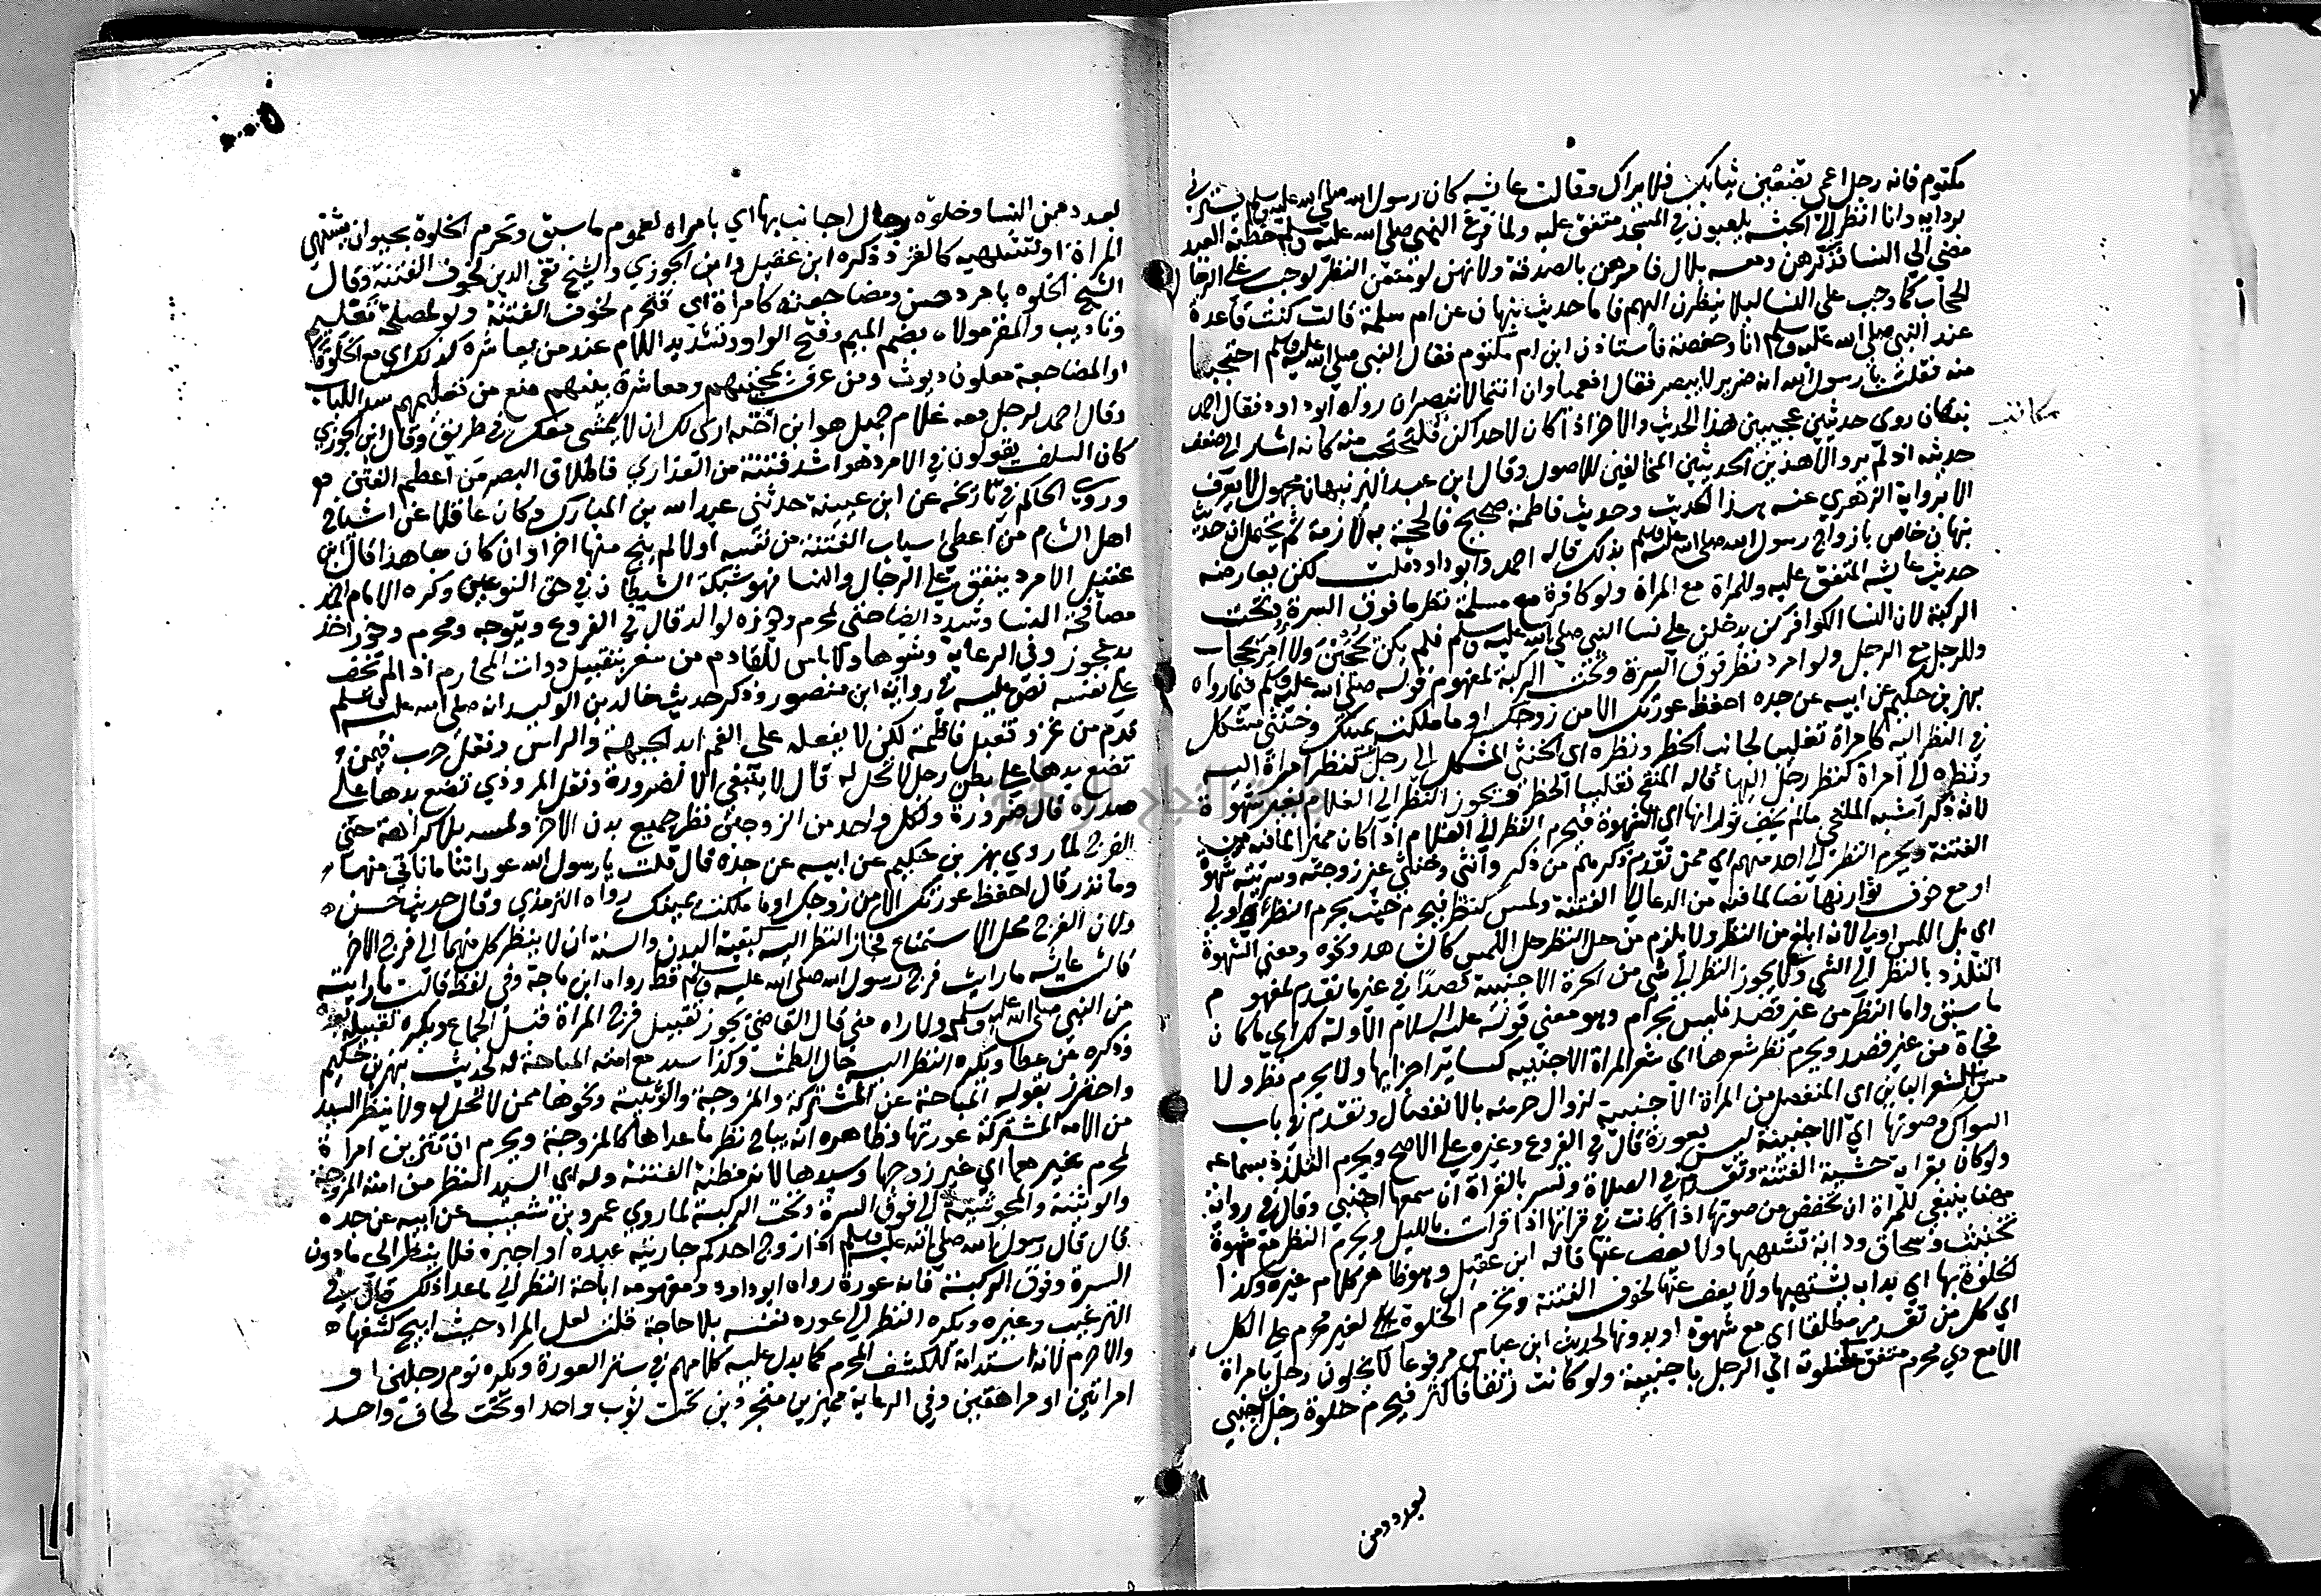 مكتوم فانه رجل اعمى تضعين ثيابك فلا يراك وقالت عايشه كان رسول الله صلى الله عليه وسلم يسترني
بردايه وانا انظر الى الحبشه يلعبون في المسجد متفق عليه ولما فرغ النبي صلى الله عليه وسلم من خطبة العيد
مضى الى النسا فذكرهن ومعه بلال فامرهن بالصدقة ولانهن لو منعن النظر لوجب على الرجال
الحجاب كما وجب على النسا ليلا ينظرن اليهم فاما حديث نبهان عن ام سلمة قالت كنت قاعدة
عند النبي صلى الله عليه وسلم انا وحفصة فاستاذن ابن ام مكتوم فقال النبي صلى الله عليه وسلم احتجبا
منه فقلت يا رسول الله انه ضرير لا يبصر فقال افعميا وان انتما لا تبصران رواه ابو داود فقال احمد
نبهان روى حديثين عجيبين هذا الحديث والاخر اذا كان لاحداكن مكاتب فلتحتجب منه كانه اشار الى ضعف
حديثه اذ لم يرو الا هذين الحديثين المخالفين للاصول وقال ابن عبد البر نبهان مجهول لا يعرف
الا برواية الزهري عنه هذا الحديث وحديث فاطمة صحيح فالحجة به لازمة ثم يحتمل ان حديث
نبهان خاص بازواج رسول الله صلى الله عليه وسلم بذلك قاله احمد وابو داود قلت لكن يعارضه
حديث عايشه المتفق عليه وللمراة مع المراة ولو كافرة مع مسلمة نظر ما فوق السرة وتحت
الركبة لان النسا الكوافر كن يدخلن على نسا النبي صلى الله عليه وسلم فلم يكن يحتجبن ولا امرن بحجاب
وللرجل مع الرجل ولو امرد نظر فوق السرة وتحت الركبة لمفهوم قوله صلى الله عليه وسلم فيما رواه
بهز بن حكيم عن ابيه عن جده احفظ عورتك الا من زوجتك او ما ملكت يمينك وخنثى مشكل
في النظر اليه كامراة تغليبا لجانب الحظر ونظره اي الخنثى المشكل الى رجل كنظر امراة اليه
ونظره الى امراة كنظر رجل اليها قاله المنقح تغليبا للحظر ويجوز النظر الى الغلام لغير شهوة
لانه ذكر اشبه الملتحي ما لم يخف ثورانها اي الشهوة فيحرم النظر الى الغلام اذا كان مميزا لما فيه من
الفتنة ويحرم النظر الى احد منهم اي ممن تقدم ذكرهم من ذكر وانثى وخنثى غير زوجته وسريته بشهوة
او مع خوف ثورانها نصا لما فيه من الدعا الى الفتنة ولمس كنظر فيحرم حيث يحرم النظر بل اولى
اي بل اللمس اولى لانه ابلغ من النظر ولا يلزم من حل النظر حل اللمس كالشاهد ونحوه ومعنى الشهوة
التلذذ بالنظر الى الشي ولا يجوز النظر الى شي من الحرة الاجنبية قصدا في غير ما تقدم لمفهوم
ما سبق واما النظر من غير قصد فليس بحرام وهو معنى قوله عليه السلام الاولة لك اي ما كان
فجاة من غير قصد ويحرم نظر شعرها اي شعر المراة الاجنبيه كساير اجزايها ولا يحرم نظر ولا
مس الشعر الباين اي المنفصل من المراة الاجنبية لزوال حرمته بالانفصال وتقدم في باب
السواك وصوتها اي الاجنبية ليس بعورة قال في الفروع وغيره على الاصح ويحرم التلذذ بسماعه
ولو كان بقراة خشية الفتنة وتقدم في الصلاة وتسر بالقراة ان سمعها اجنبي وقال في رواية
مهنا ينبغي للمراة ان تخفض من صوتها اذا كانت في قرانها اذا قرات بالليل ويحرم النظر مع شهوة
تخنيث وسحاق ودابة تشتهيها ولا يعف عنها قاله ابن عقيل وهو ظاهر كلام غيره وكذا
الخلوة بها اي بداب يشتهيها ولا يعف عنها لخوف الفتنة وتحرم الخلوة لغير محرم على الكل
اي كل من تقدم مطلقا اي مع شهوة او بدونها لحديث ابن عباس مرفوعا لا يخلون رجل بامراة
الا مع ذي محرم متفق عليه كخلوته اي الرجل باجنبية ولو كانت رتقا فاكثر فيحرم خلوة رجل اجنبي
بعدد من
مكاتب
بعدد من النسا وخلوة رجال اجانب بها اي بامراه لعموم ما سبق وتحرم الخلوة بحيوان يشتهي
المراة او تشتهيه كالقرد ذكره ابن عقيل وابن الجوزي والشيخ تقي الدين لخوف الفتنة وقال
الشيخ الخلوه بامرد حسن ومضاجعته كامراة اي فتحرم لخوف الفتنة ولو لمصلحة تعليم
وتاديب والمقر مولاه بضم الميم وفتح الواو وتشديد اللام عند من يعاشره كذلك اي مع الخلوة
او المضاجعة ملعون ديوث ومن عرف بمحبتهم ومعاشرة بينهم منع من تعليمهم سدا للباب
وقال احمد لرجل معه غلام جميل هو ابن اخته ارى لك ان لا يمشي معك في طريق وقال ابن الجوزي
كان السلف يقولون في الامرد هو اشد فتنة من العذارى فاطلاق البصر من اعظم الفتن
وروى الحاكم في تاريخه عن ابن عيينة حدثني عبد الله بن المبارك وكان عاقلا عن اشياخ
اهل الشام من اعطى اسباب الفتنة من نفسه اولا لم ينج منها اخرا وان كان جاهدا قال ابن
عقيل الامرد ينفق على الرجال والنسا فهو شبكة الشيطان في حق النوعين وكره الامام احمد
مصافحة النسا وشدد ايضا حتى لمحرم وجوزه لوالد قال في الفروع ويتوجه ومحرم وجوز اخذ
يد عجوز وفي الرعاية وشوها ولا باس للقادم من سفر بتقبيل ذوات المحارم اذا لم يخف
على نفسه نص عليه في رواية ابن منصور وذكر حديث خالد بن الوليد انه صلى الله عليه وسلم
قدم من غزو فقبل فاطمة لكن لا يفعله على الفم ابدا الجبهة والراس ونقل حرب فيمن
تضع يدها على بطن رجل لا تحل له قال لا ينبغي الا لضرورة ونقل المروذي تضع يدها على
صدره قال ضرورة ولكل واحد من الزوجين نظر جميع بدن الاخر ولمسه بلا كراهة حتى
الفرج لما روى بهز بن حكيم عن ابيه عن جده قال قلت يا رسول الله عوراتنا ما ناتي منها
وما نذر قال احفظ عورتك الا من زوجتك او ما ملكت يمينك رواه الترمذي وقال حديث حسن
ولان الفرج محل الاستمتاع فجاز النظر اليه كبقية البدن والسنة ان لا ينظر كل منهما الى فرج الاخر
قالت عايشه ما رايت فرج رسول الله صلى الله عليه وسلم قط رواه ابن ماجة وفي لفظ قالت ما رايته
من النبي صلى الله عليه وسلم ولا راه مني قال القاضي يجوز تقبيل فرج المراة قبل الجماع ويكره تقبيله بعده
وذكره عن عطا ويكره النظر اليه حال الطمث وكذا سيد مع امته المباحة له لحديث بهز بن حكيم
واحترز بقوله المباحة عن المشتركة والمزوجة والوثنية ونحوها ممن لا تحل له ولا ينظر السيد
من الامه المشتركة عورتها وظاهره انه يباح نظر ما عداها كالمزوجة ويحرم ان تتزين امراة
لمحرم غيرهما اي غير زوجها وسيدها لانه مظنة الفتنة وله اي السيد النظر من امته المزوجة
والوثنية والمجوسية الى فوق السرة وتحت الركبة لما روى عمرو بن شعيب عن ابيه عن جده
قال قال رسول الله صلى الله عليه وسلم اذا زوج احدكم جاريته عبده او اجيره فلا ينظر الى ما دون
السرة وفوق الركبة فانه عورة رواه ابو داود ومفهومه اباحة النظر الى ما عدا ذلك قال في
الترغيب وغيره ويكره النظر الى عورة نفسه بلا حاجة قلت لعل المراد حيث ابيح كشفها
والا حرم لانه استدامة للكشف المحرم كما يدل عليه كلامهم في ستر العورة ويكره نوم رجلين او
امراتين او مراهقين وفي الرعاية مميزين متجردين تحت ثوب واحد او تحت لحاف واحد